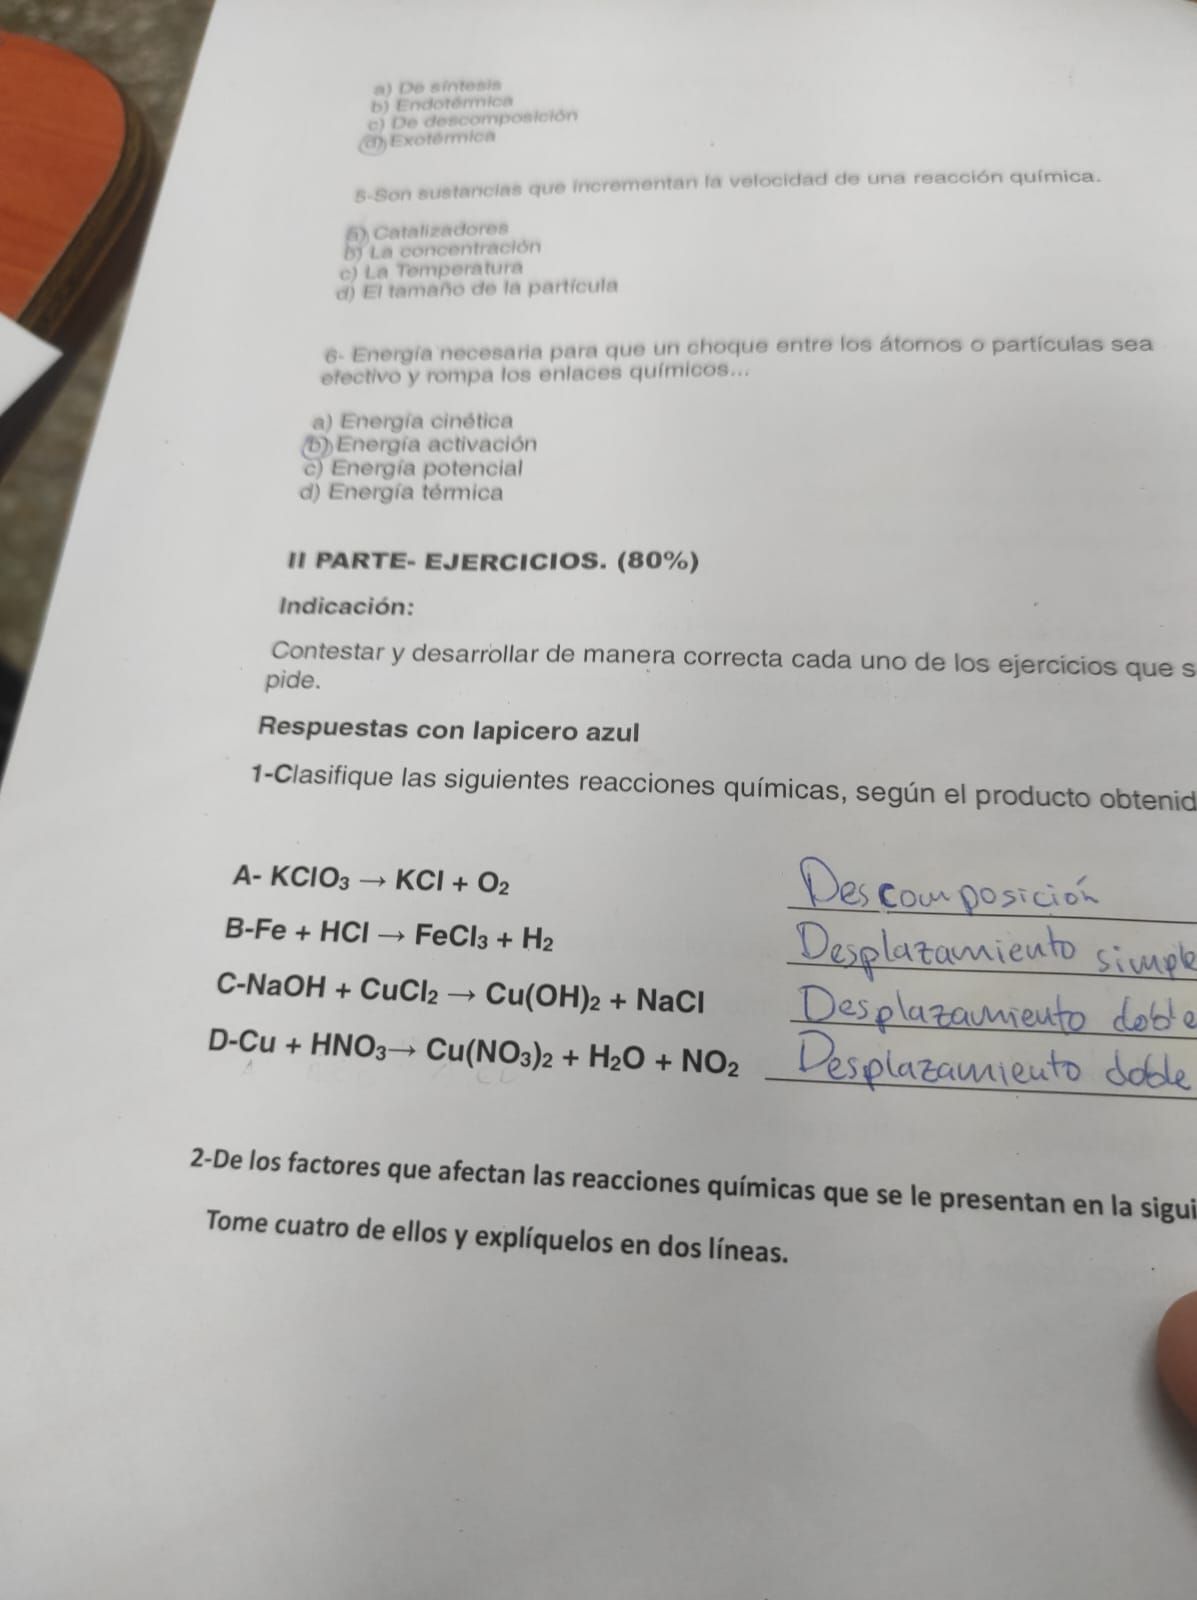 a) De síntesis
b) Endotérmica
c) De descomposición
d) Exotérmica
5-Son sustancias que incrementan la velocidad de una reacción química.
a) Catalizadores
b) La concentración
c) La Temperatura
d) El tamaño de la partícula
6- Energía necesaria para que un choque entre los átomos o partículas sea
efectivo y rompa los enlaces químicos...
a) Energía cinética
b) Energía activación
c) Energía potencial
d) Energía térmica
II PARTE- EJERCICIOS. (80%)
Indicación:
Contestar y desarrollar de manera correcta cada uno de los ejercicios que s
pide.
Respuestas con lapicero azul
1-Clasifique las siguientes reacciones químicas, según el producto obtenid
A- KClO₃ → KCl + O₂ Descomposición
B-Fe + HCl → FeCl₃ + H₂ Desplazamiento simple
C-NaOH + CuCl₂ → Cu(OH)₂ + NaCl Desplazamiento doble
D-Cu + HNO₃→ Cu(NO₃)₂ + H₂O + NO₂ Desplazamiento doble
2-De los factores que afectan las reacciones químicas que se le presentan en la sigui
Tome cuatro de ellos y explíquelos en dos líneas.